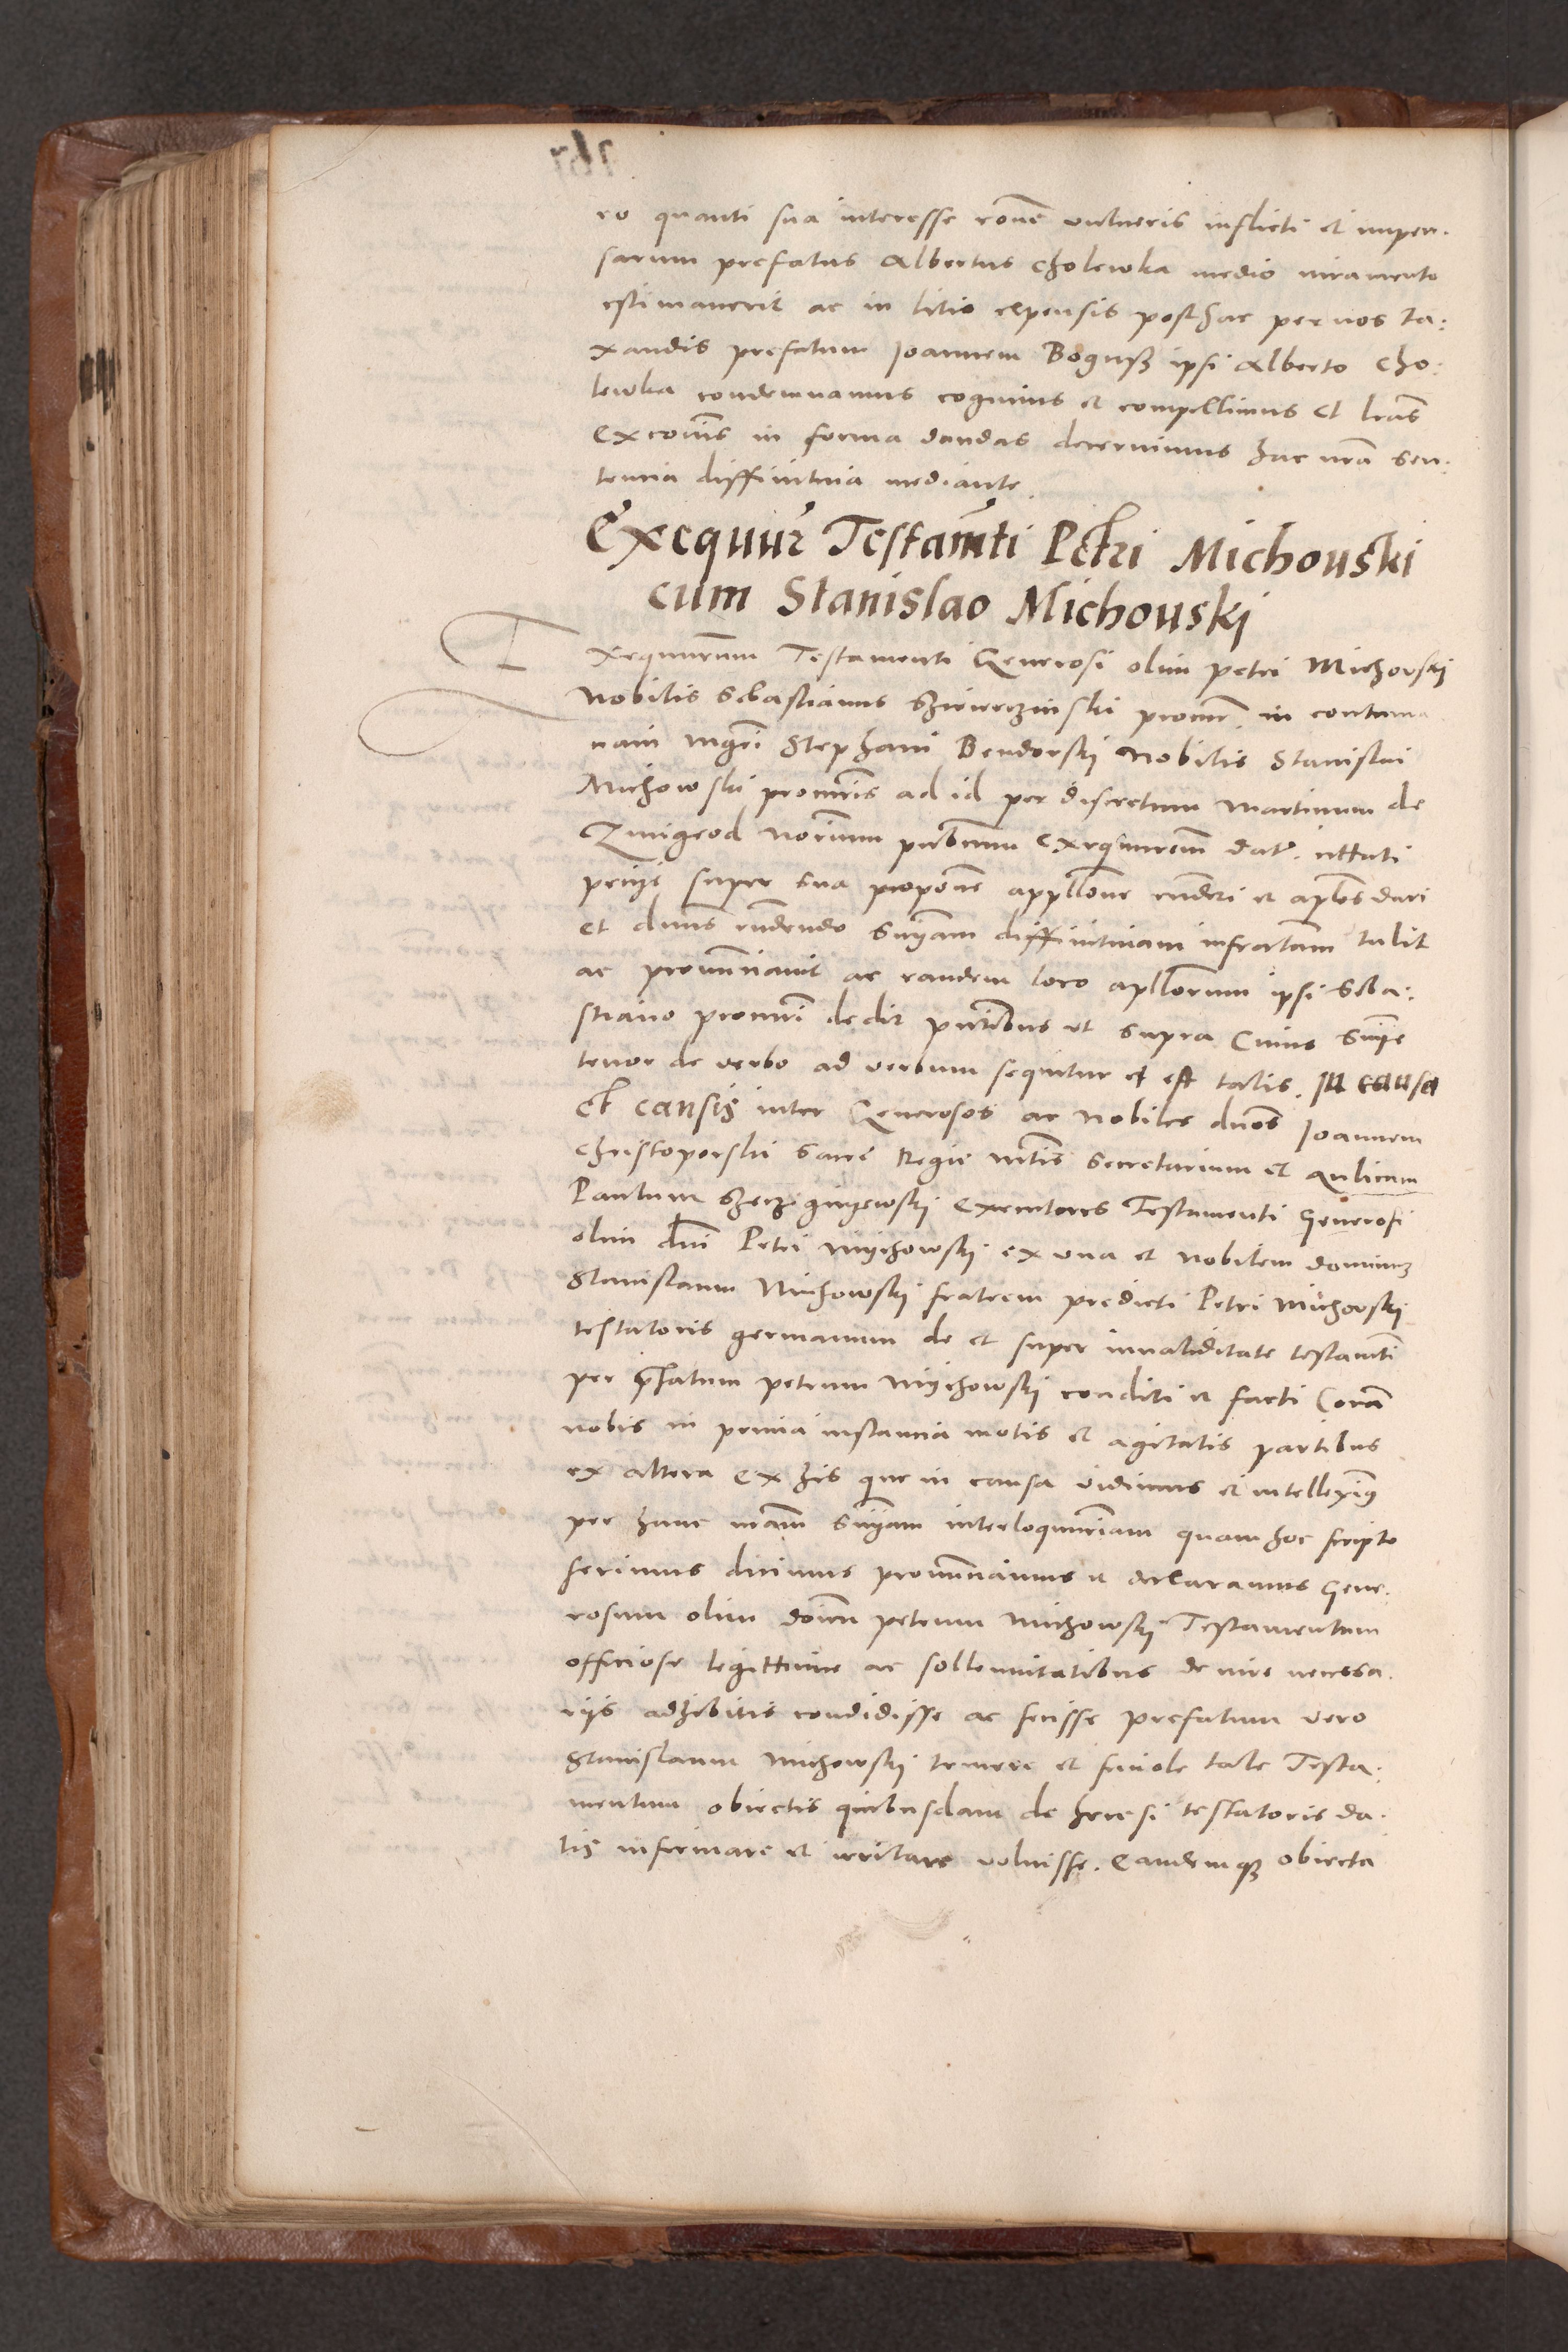 ro quanti sua interesse rone vulneris inflicti et impen.
sarum prefatus Albertus Cholewka medio iuramento
estimaverit ac in litis expensis posthac per nos ta:
xandis prefatum Joannem Boguss ipsi Alberto Cho:
lewka condemnamus cogimus et compellimus Et lras
exconis in forma dandas decernimus hac nra sen:
tencia diffinitiva mediante.
Exequur Testamti Petri Michouski
cum Stanislao Michouski
Exequutorum Testamenti Generosi olim Petri Michovski
Nobilis Sebastianus procur. in contuma
ciam mgri Stephani Bendorski Nobilis Stanislai
Michowski procuris ad id per discretum Martinum de
Zmigrod norium publicum exequutorem dat.
petiit super sua propone appllone et aplos dari
et dnus sniam diffinitivam infratam tulit
ac pronunciavit ac eandem loco apllorum ipsi Seba:
stiano procuri dedit pntibus ut supra Cuius snie
tenor de verbo ad verbum sequitur et est talis. In causa
et causis inter Generosos ac nobiles dnos Joannem
Christoporski sacre Regie mtis Secretarium et Aulicum
Paulum executores Testamenti Generosi
olim dni Petri Mychowski ex una et nobilem dominum
Stanislaum Michowski fratrem predicti Petri Michovski
testatoris germanum de et super invaliditate testamti
per prefatum Petrum Mychowski conditi et facti Coram
nobis in prima instancia motis et agitatis partibus
ex altera Ex his que in causa vidimus et intelleximus
per hanc nram sniam interloqutoriam quam hoc scripto
ferimus dicimus pronunciamus et declaramus Gene:
rosum olim dominum Petrum Michowski Testamentum
officiose legittime ac sollemnitatibus de iure necessa.
riis adhibitis condidisse ac fecisse prefatum vero
Stanislaum Michowski temere et frivole tale Testa:
mentum obiectis quibusdam de heresi testatoris da.
tis infirmare et irritare voluisse. Eandemque obiecta